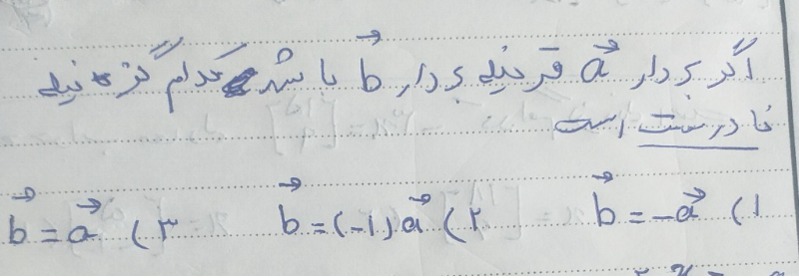 اگر بردار a⃗ قرینهٔ بردار b⃗ باشد کدام گزینه
نادرست است
۱) b⃗ = -a⃗   ۲) b⃗ = (-۱)a⃗   ۳) b⃗ = a⃗